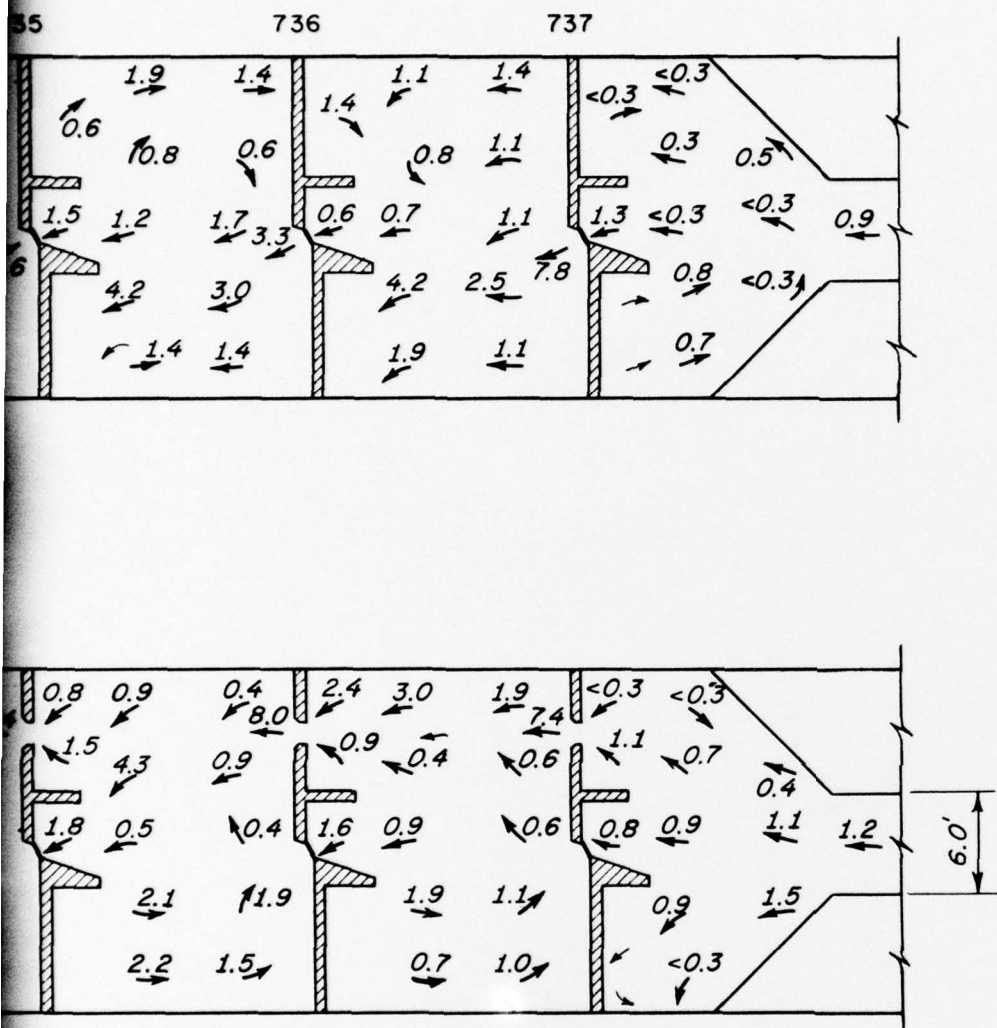 35 736 737
1.9 1.4 1.1 1.4 <0.3 <0.3
0.6 1.4
0.8 0.6 0.8 1.1 0.3 0.5
1.5 1.2 1.7 3.3 0.6 0.7 1.1 1.3 <0.3 <0.3 0.9
6 7.8
4.2 3.0 4.2 2.5 0.8 <0.3
1.4 1.4 1.9 1.1 0.7
0.8 0.9 0.4 2.4 3.0 1.9 <0.3 <0.3
8.0 7.4
1.5 4.3 0.9 0.9 0.4 0.6 1.1 0.7
0.4
1.8 0.5 0.4 1.6 0.9 0.6 0.8 0.9 1.1 1.2
6.0'
2.1 1.9 1.9 1.1 0.9 1.5
2.2 1.5 0.7 1.0 <0.3